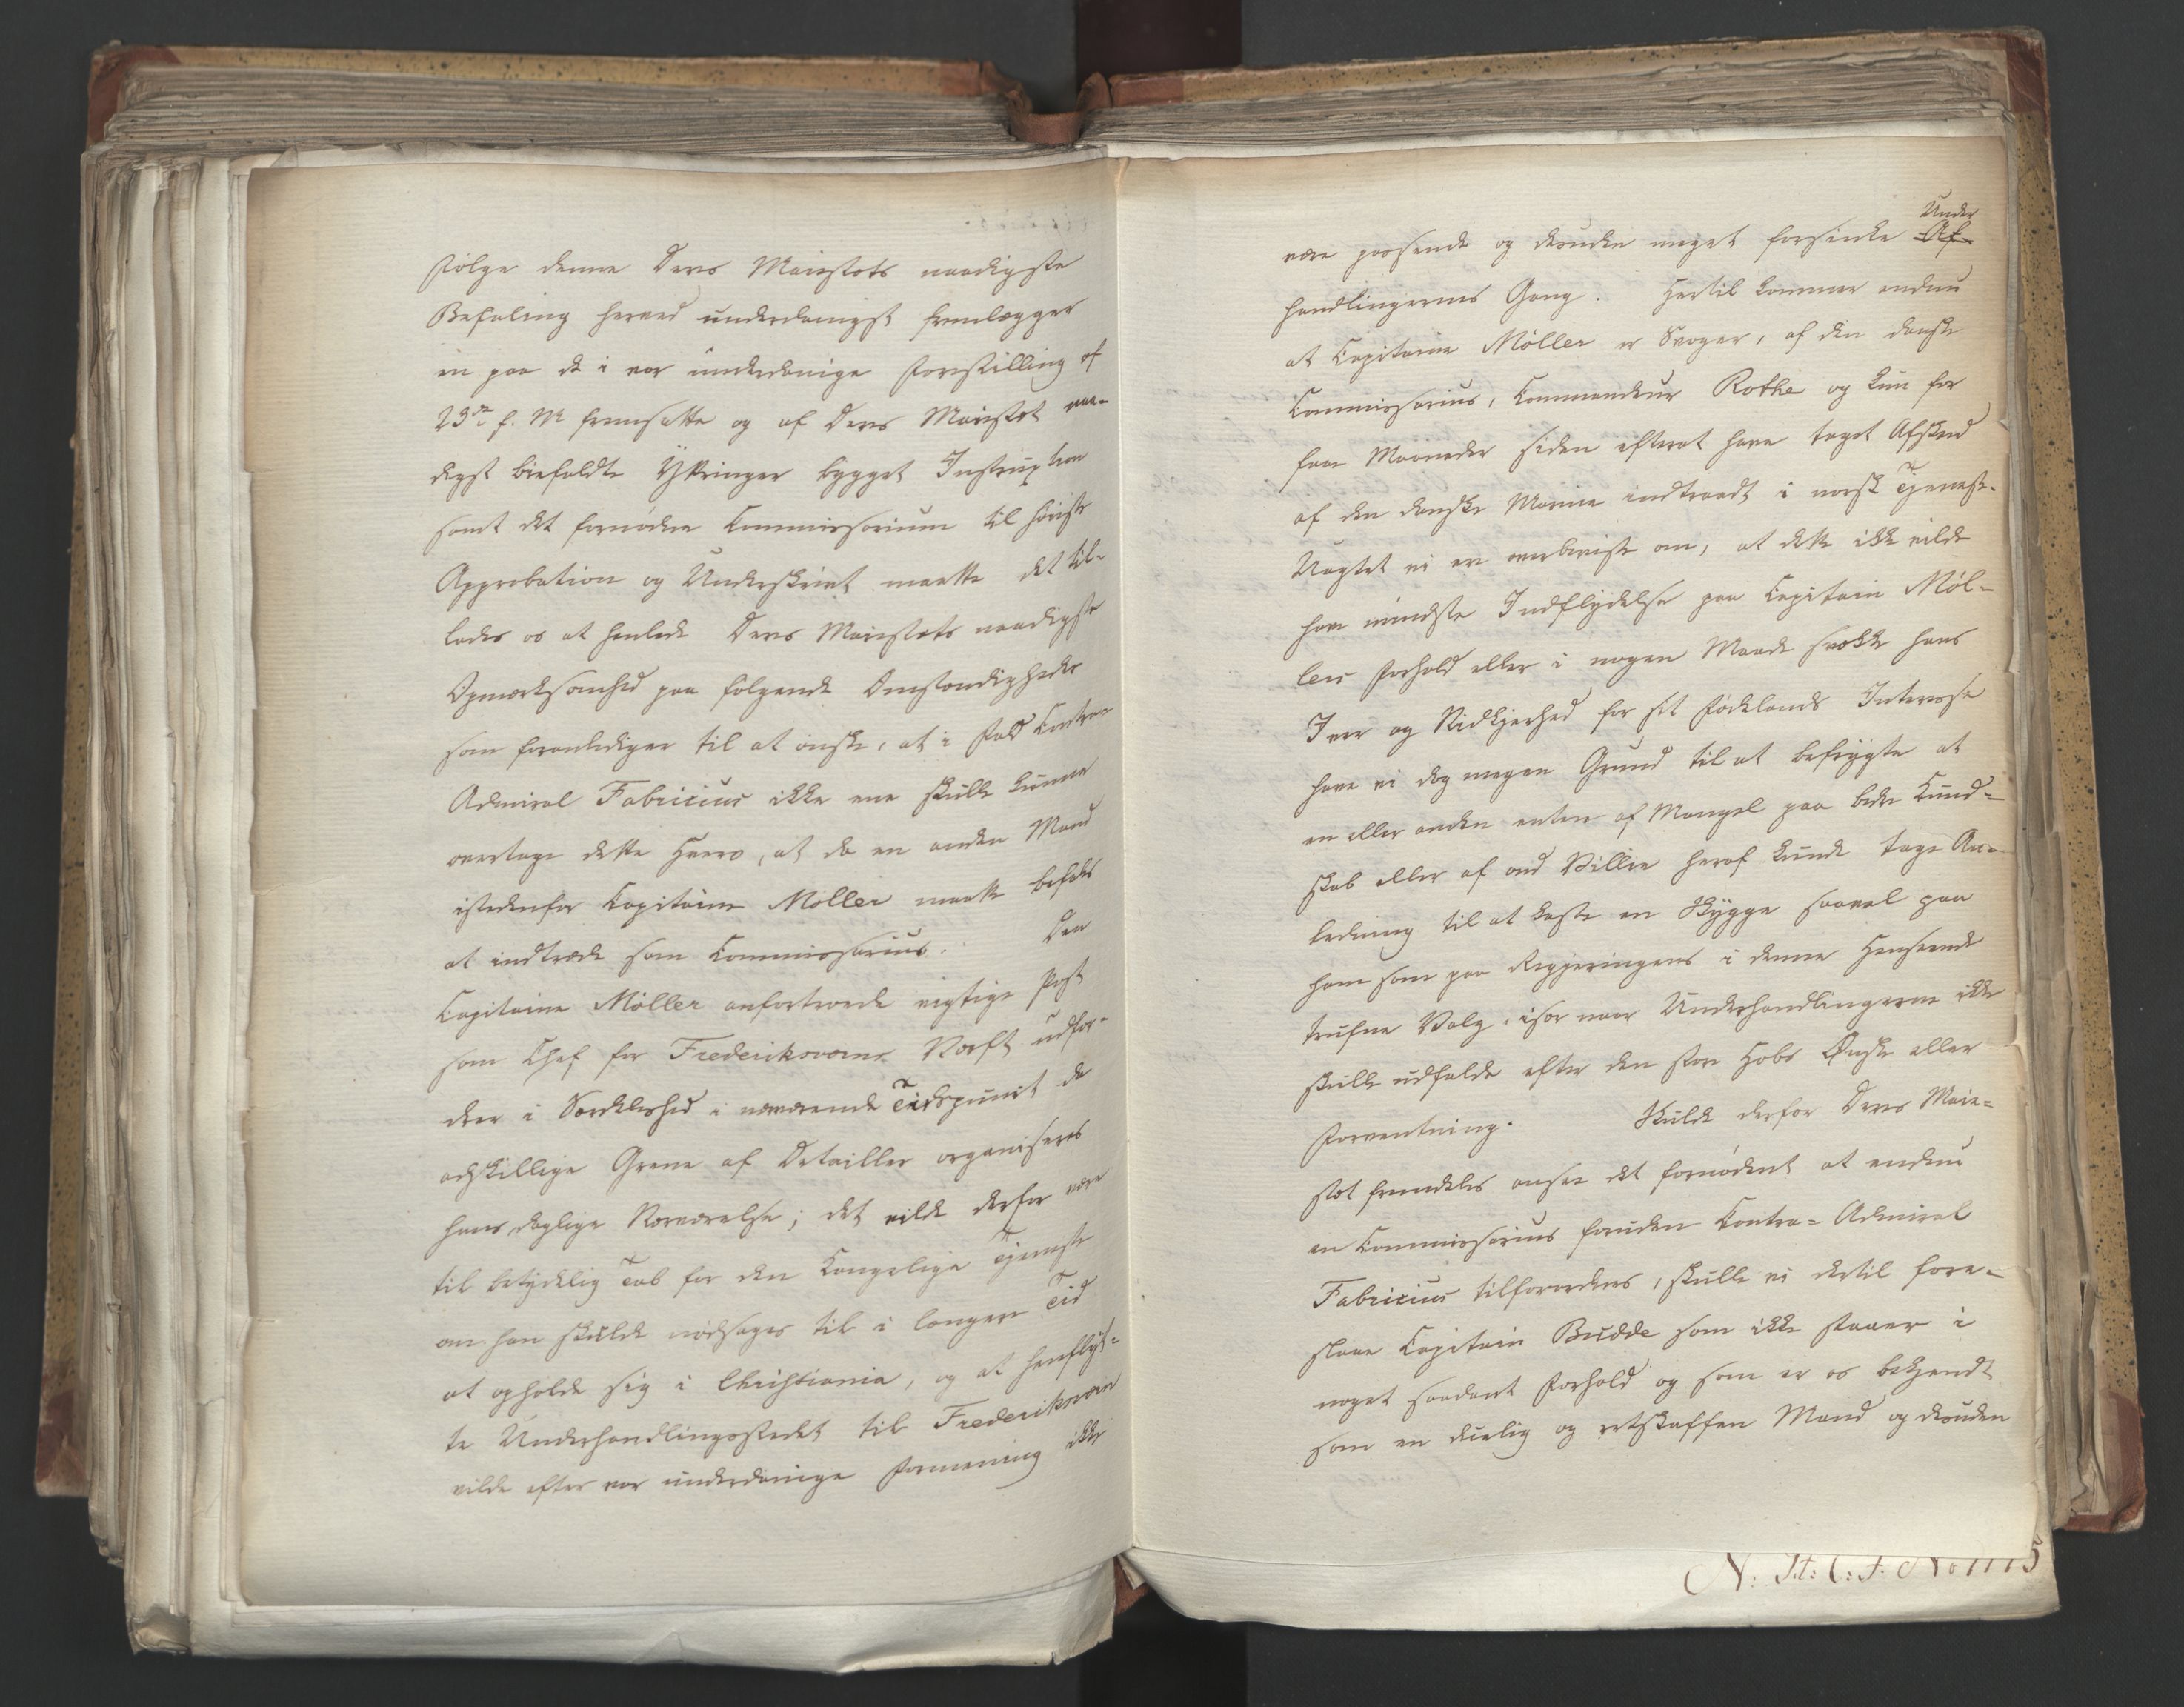 følge denne Deres Maiestæts naadigste
Befaling herved underdanigst fremlægger
en paa de i vor underdanige Forestilling af
23de f. M. fremsatte og af Deres Maiestæt naa-
digst biefaldte Ytringer bygget Instruxtion
samt det fornødne Commissorium til høieste
Approbation og Underskrivt maatte det til-
lades os at henlede Deres Maiestæts naadigste
Opmærksomhed paa følgende Omstændigheder
som foranlediger til at ønske, at i Fald Contra-
Admiral Fabricius ikke ene skulle kunne
overtage dette Hverv, at da en anden Mand
istedenfor Capitaine Møller maatte befales
at indtræde som Commissarius. Den
Capitaine Møller anfortroede vigtige Post
som Chef for Frederiksværns Værft udfor-
drer i Særdeleshed i nærværende Tidspunct da
adskillige Grene af Detailler organiseres
hans daglige Nærværelse; det vilde derfor være
til betydelig Tab for den Kongelige Tjeneste
om han skulde nødsages til i længere Tid
at opholde sig i Christiania, og at henflyt-
te Underhandlingsstedet til Frederiksværn
vilde efter vor underdanige Formening ikke
være passende og desuden meget forsinke Under
Af
handlingernes Gang. Hertil kommer endnu
at Capitaine Møller er Svoger, af den danske
Commissarius, Commandeur Rothe og kun for
faae Maaneder siden efterat have taget Afsked
af den danske Marine indtraadt i norsk Tjeneste.
Uagtet vi er overbeviste om, at dette ikke vilde
have mindste Indflydelse paa Capitain Møl-
lers Forhold eller i nogen Maade svække hans
Iver og Nidkjerhed for sit Fødelands Interesse
have vi dog megen Grund til at befrygte at
en eller anden enten af Mangel paa bedre Kund-
skab eller af ond Villie heraf kunde tage An-
ledning til at kaste en Skygge saavel paa
ham som paa Regjeringens i denne Henseende
trufne Valg, især naar Underhandlingerne ikke
skulle udfalde efter den store Hobs Ønske eller
Forventning. Skulde derfor Deres Maie-
stæt fremdeles ansee det fornødent at endnu
en Commissarius foruden Contra-Admiral
Fabricius tilforordnes, skulle vi dertil fore-
slaae Capitain Budde som ikke staaer i
noget saadant Forhold og som er os bekjendt
som en duelig og retskaffen Mand og desuden
N: H: C: J: No 1115